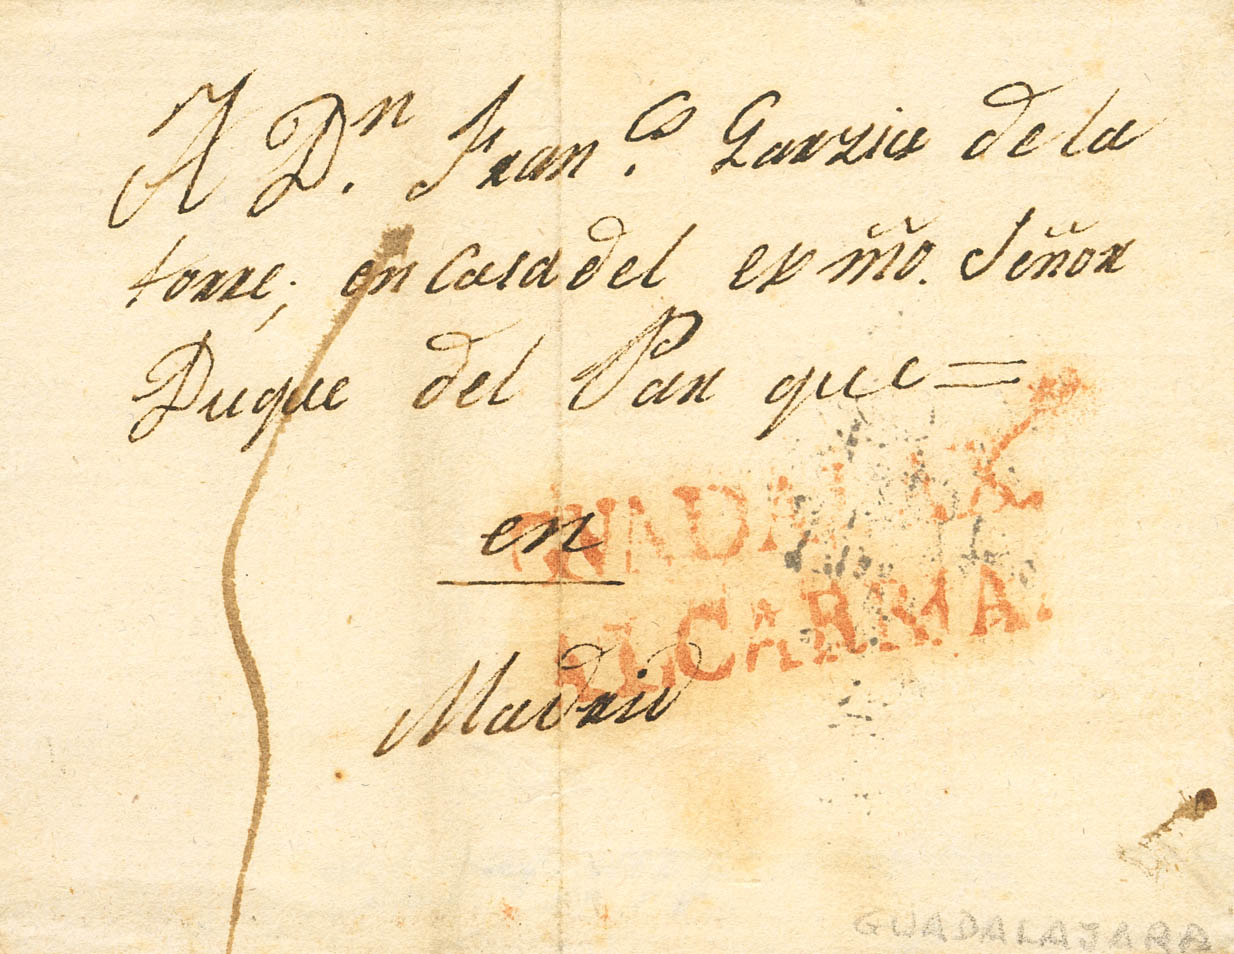 A Dn. Fran.co Garzia de la
torre; en Casa del exmõ. Señor
Duque del Parque =
en
Madrid
ALCARRIA.
GUADALAJARA